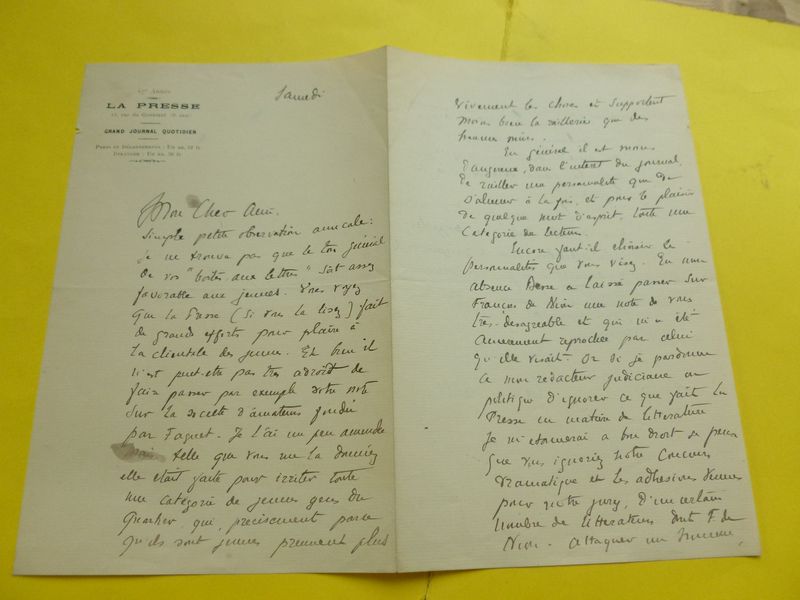 LA PRESSE
GRAND JOURNAL QUOTIDIEN
Samedi
Mon Cher Ami.
Simple petite observation amicale :
je ne trouve pas que le ton général
de vos "boites aux lettres" soit assez
favorable aux jeunes. Vous voyez
que la Presse (si vous la lisez) fait
de grands efforts pour plaire à
la clientèle des jeunes. Eh bien il
n'est peut-être pas très adroit de
faire passer par exemple votre note
sur la société d'amateurs fondée
par Faguet. Je l'ai un peu amendée
mais telle que vous me la donniez
elle était faite pour irriter toute
une catégorie de jeunes gens du
quartier, qui, précisément parce
qu'ils sont jeunes prennent plus
vivement les choses et supportent
moins bien la raillerie que des
hommes mûrs.
En général il est moins
dangereux, dans l'intérêt du journal,
de railler une personnalité que de
s'aliéner à la fois, et pour le plaisir
de quelque mot d'esprit, toute une
catégorie de lecteurs.
Encore faut-il choisir les
personnalités que vous visez. En mon
absence a laissé passer sur
François de Nion une note de vous
très désagréable et qui m'a été
amèrement reprochée par celui
qu'elle visait. Or si je pardonne
à mon rédacteur judiciaire ou
politique d'ignorer ce que fait la
Presse en matière de littérature
je m'étonnerai à bon droit je pense
que vous ignoriez notre Concours
dramatique et les adhésions venues
pour notre jury, d'un certain
nombre de littérateurs dont F. de
Nion. Attaquer un homme,